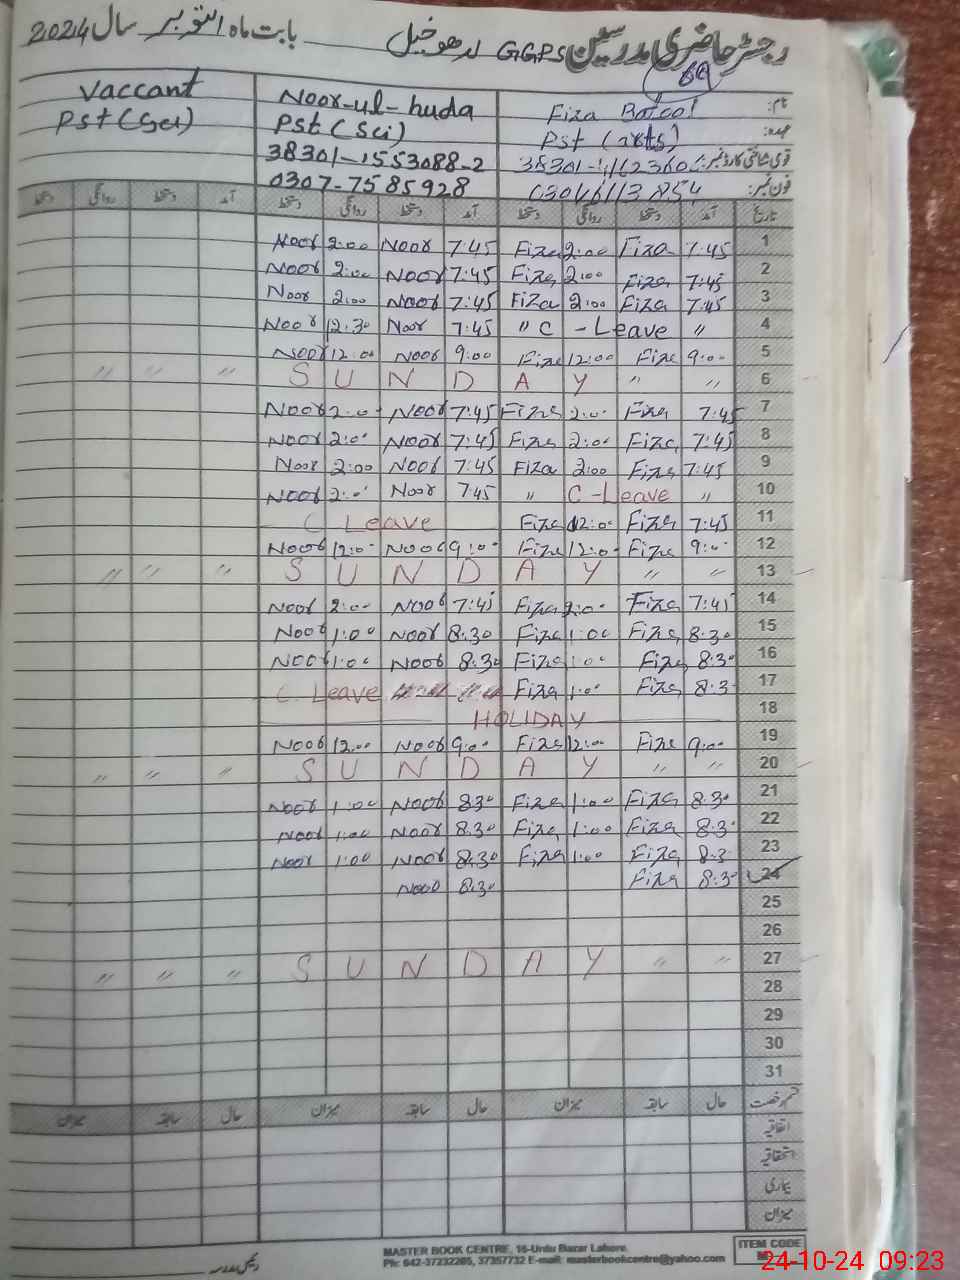 رجسٹر حاضری مدرسین GGPS بابت ماہ اکتوبر سال 2024
69
Vaccant Noor-ul-huda Fiza Batool نام:
Pst (Sci) Pst (Sci) Pst (arts) عہدہ:
38301-1553088-2 قومی شناختی کارڈ نمبر:
0307-7585928 فون نمبر:
دستخط روانگی دستخط آمد دستخط روانگی دستخط آمد دستخط روانگی دستخط آمد تاریخ
Noor 2:00 Noor 7:45 Fiza 2:00 Fiza 7:45 1
Noor 2:00 Noor 7:45 Fiza 2:00 Fiza 7:45 2
Noor 2:00 Noor 7:45 Fiza 2:00 Fiza 7:45 3
Noor 12:30 Noor 7:45 " C - Leave " 4
Noor 12:00 Noor 9:00 Fiza 12:00 Fiza 9:00 5
" " " S U N D A Y " " 6
Noor 2:00 Noor 7:45 Fiza 2:00 Fiza 7:45 7
Noor 2:00 Noor 7:45 Fiza 2:00 Fiza 7:45 8
Noor 2:00 Noor 7:45 Fiza 2:00 Fiza 7:45 9
Noor 2:00 Noor 7:45 " C - Leave " 10
C Leave Fiza 12:00 Fiza 7:45 11
Noor 12:00 Noor 9:00 Fiza 12:00 Fiza 9:00 12
" " " S U N D A Y " " 13
Noor 2:00 Noor 7:45 Fiza 2:00 Fiza 7:45 14
Noor 1:00 Noor 8:30 Fiza 1:00 Fiza 8:30 15
Noor 1:00 Noor 8:30 Fiza 1:00 Fiza 8:30 16
C. Leave Fiza 1:00 Fiza 8:30 17
HOLIDAY 18
Noor 12:00 Noor 9:00 Fiza 12:00 Fiza 9:00 19
" " " S U N D A Y " " 20
Noor 1:00 Noor 8:30 Fiza 1:00 Fiza 8:30 21
Noor 1:00 Noor 8:30 Fiza 1:00 Fiza 8:30 22
Noor 1:00 Noor 8:30 Fiza 1:00 Fiza 8:30 23
Noor 8:30 Fiza 8:30 24
25
26
" " " S U N D A Y " " 27
28
29
30
31
میزان سابقہ حال میزان سابقہ حال میزان سابقہ حال قسم رخصت
اتفاقیہ
استحقاقیہ
بیماری
میزان
MASTER BOOK CENTRE, 16-Urdu Bazar Lahore.
Ph: 042-37232205, 37357732 E-mail: masterbookcentre@yahoo.com
ITEM CODE
24-10-24 09:23